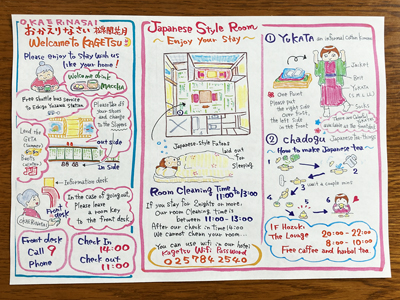 OKAERINASAI
おかえりなさい
Welcome to KAGETSU
Please enjoy to stay with us
like your home!
Welcome drink
Maccha
Free shuttle bus service
to Echigo Yuzawa Station
Please take off
your shoes
and change
to the Slippers
Lend the
GETA
out side
in side
Information desk
In the case of going out,
Please leave
a room key
to the front desk
Front
desk
Front desk
Call 9
Phone
Check In
14:00
Check out
11:00
Japanese Style Room
~ Enjoy Your Stay ~
Japanese-Style Futons
laid out
for
Sleeping
Room Cleaning Time
11:00 to 13:00
If you stay for 2nights or more,
Our room Cleaning time is
between 11:00 - 13:00
After our check in Time 14:00
We cannot clean your room...
You can use wifi in our hotel
Kagetsu Wifi Password
0257842540
① YUKATA
an informal Cotton Kimono
Jacket
Belt
Yukata
Socks
One Point
Please put
the right side
Over
first,
the left side
in the front
② chadogu
Japanese Tea things
How to make Japanese tea
Wait a couple mins
1F Hozuki
The Lounge
20:00 - 22:00
8:00 - 10:00
Free coffee and harbal tea